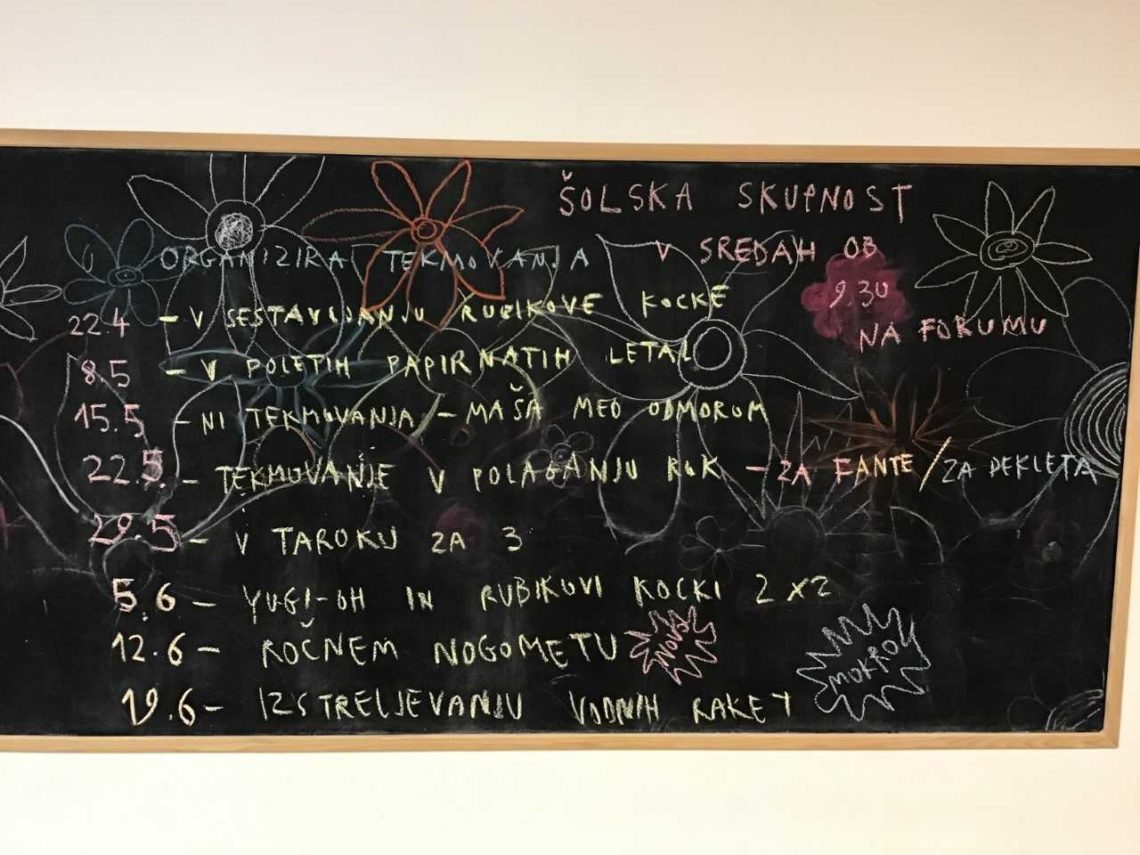 ŠOLSKA SKUPNOST
ORGANIZIRA TEKMOVANJA V SREDAH OB
9.30
NA FORUMU
22.4 - V SESTAVLJANJU RUBIKOVE KOCKE
8.5 - V POLETIH PAPIRNATIH LETAL
15.5 - NI TEKMOVANJA - MAŠA MED ODMOROM
22.5. - TEKMOVANJE V POLAGANJU ROK - ZA FANTE / ZA DEKLETA
29.5 - V TAROKU ZA 3
5.6 - YUGI-OH IN RUBIKOVI KOCKI 2x2
12.6 - ROČNEM NOGOMETU NOVO
19.6 - IZSTRELJEVANJU VODNIH RAKET MOKRO